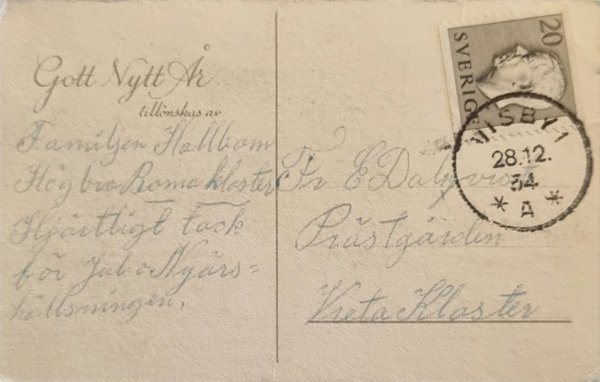 Gott Nytt År
tillönskas av
Familjen Hallbom
Högbro Romakloster
Hjärtligt tack
för Jul o Nyårs=
hällsningen,
20
SVERIGE
VISBY 1
28.12.
54
* A *
Fr E Dalqvist
Prästgården
Vieta Kloster